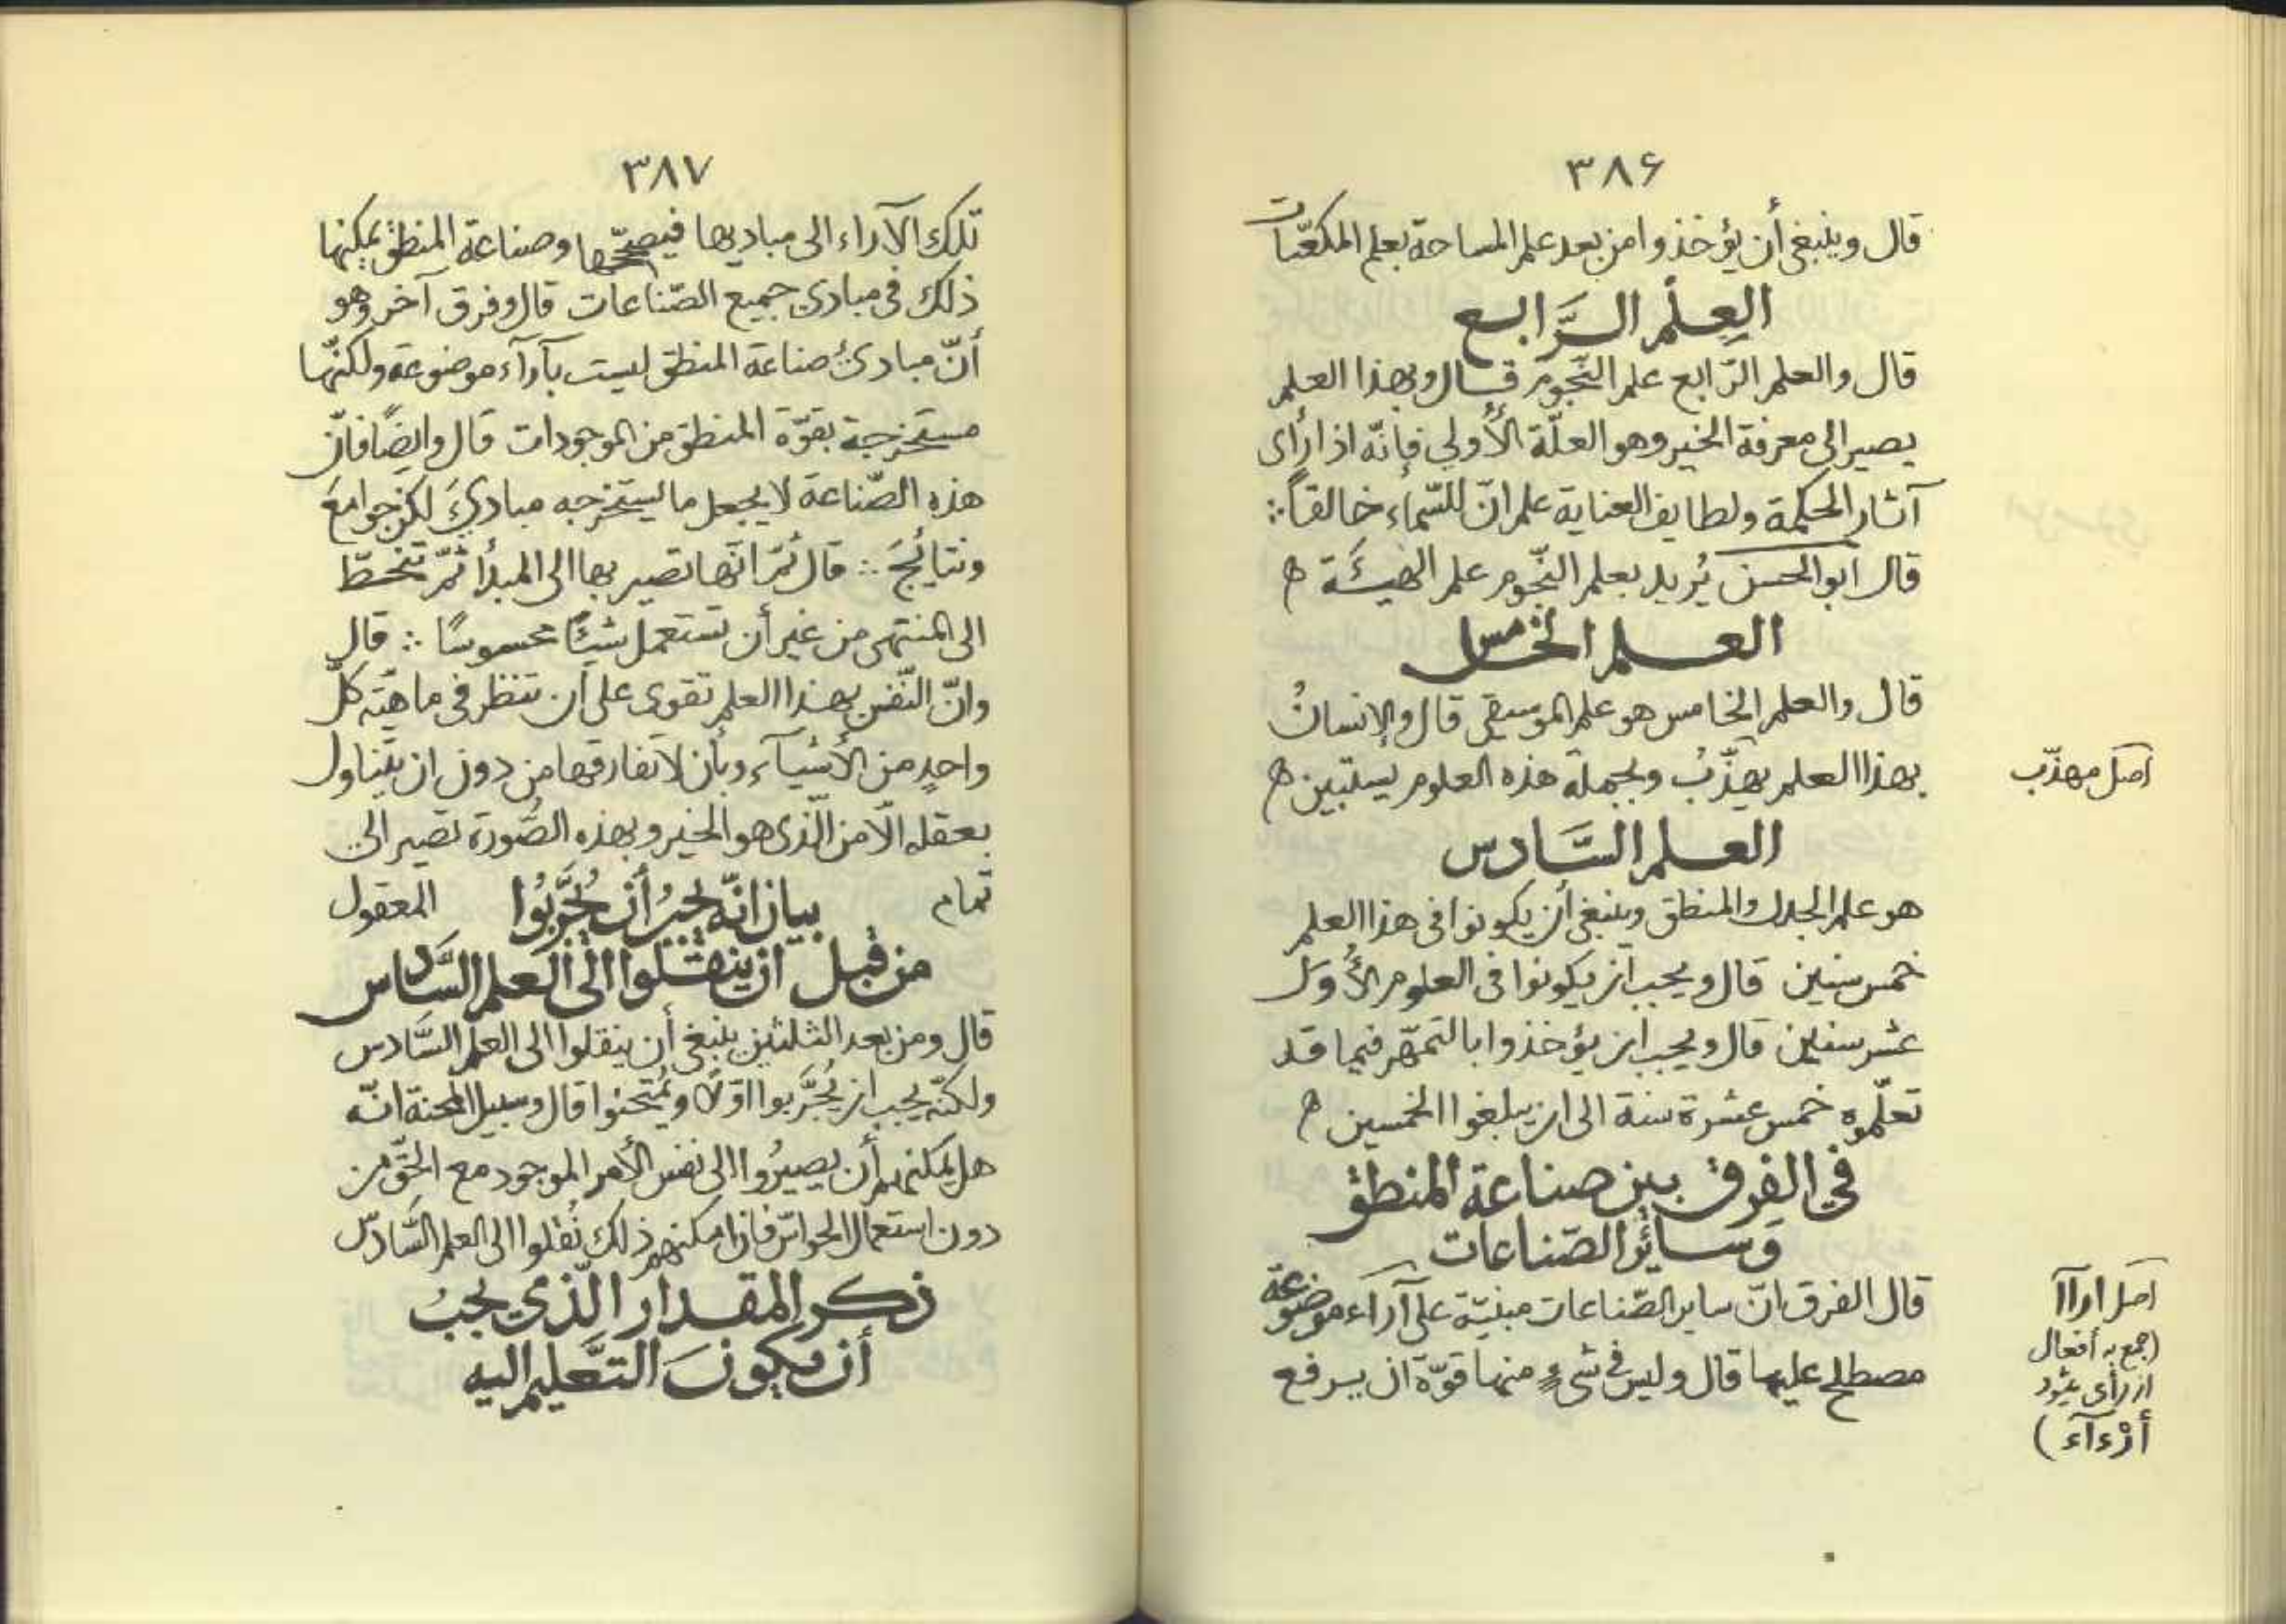 ٣٨۶
قال وينبغى أن يؤخذوا من بعد علم المساحة بعلم المكعّبات
العِلْمِ الرَّابع
قال والعلم الرّابع علم النّجوم قال وبهذا العلم
يصير الى معرفة الخير وهو العلّة الأُولى فانّه اذا رأى
آثار الحكمة ولطايف العناية علم انّ للسّماء خالقاً ∴
قال ابو الحسن يُريد بعلم النّجوم علم الهيئَة ه
العلم الخامس
قال والعلم الخامس هو علم الموسيقى قال والإنسانُ
بهذا العلم يهذّبُ وبجملة هذه العلوم يستبين ه
اصل مهذّب
العلم السَّادس
هو علم الجدل والمنطق وينبغى أن يكونوا فى هذا العلم
خمس سنين قال ويجب ان يكونوا فى العلوم الأُوَل
عشر سنين قال ويجب ان يؤخذوا بالتمهّر فيما قد
تعلّموه خمس عشرة سنة الى ان يبلغوا الخمسين ه
في الفرق بين صناعة المنطق
وَسائرِ الصّناعات
قال الفرق انّ ساير الصّناعات مبنيّة على آراء موضوعة
مصطلح عليها قال وليس فى شىءٍ منها قوّة ان يرفع
اصل اراآ
(جمع به أفعال
از رأى بشود
أرْءآء)
٣٨٧
تلك الآراء الى مباديها فيصحّحها وصناعة المنطق يمكنها
ذلك فى مبادى جميع الصّناعات قال وفرق آخر وهو
أنّ مبادىُ صناعة المنطق ليست بآراء موضوعة ولكنّها
مستخرجة بقوّة المنطق من الموجودات قال وايضًا فانّ
هذه الصّناعة لا يجعل ما يستخرجه مبادىَ لكن جوامعَ
ونتايجَ ∴ قال ثمّ انّها تصير بها الى المبدأ ثمّ تنحطّ
الى المنتهى من غير أن تستعمل شيئًا محسوسًا ∴ قال
وانّ النّفس بهذا العلم تقوى على ان تنظر فى ماهيّة كلّ
واحدٍ من الأشيآء وبأن لا تفارقها من دون ان يتناول
بعقله الّا من الّذى هو الخير وبهذه الصُّورة تصير الى
تمام المعقول
بيان انّه يجبُ أن يُجَرَّبُوا
من قبل ان ينقلوا الى العلم السَّادس
قال ومن بعد الثلثين ينبغى أن ينقلوا الى العلم السَّادس
ولكنّه يجب ان يُجَرَّبوا اوّلًا ويُمتحنوا قال وسبيل المحنة انّه
هل يمكنهم أن يصيرُوا الى نفس الأمر الموجود مع الحقّ من
دون استعمال الحواسّ فان امكنهم ذلك نُقلوا الى العلم السَّادس
ذكر المقدار الّذى يجبُ
أن يكونَ التَّعليم اليه